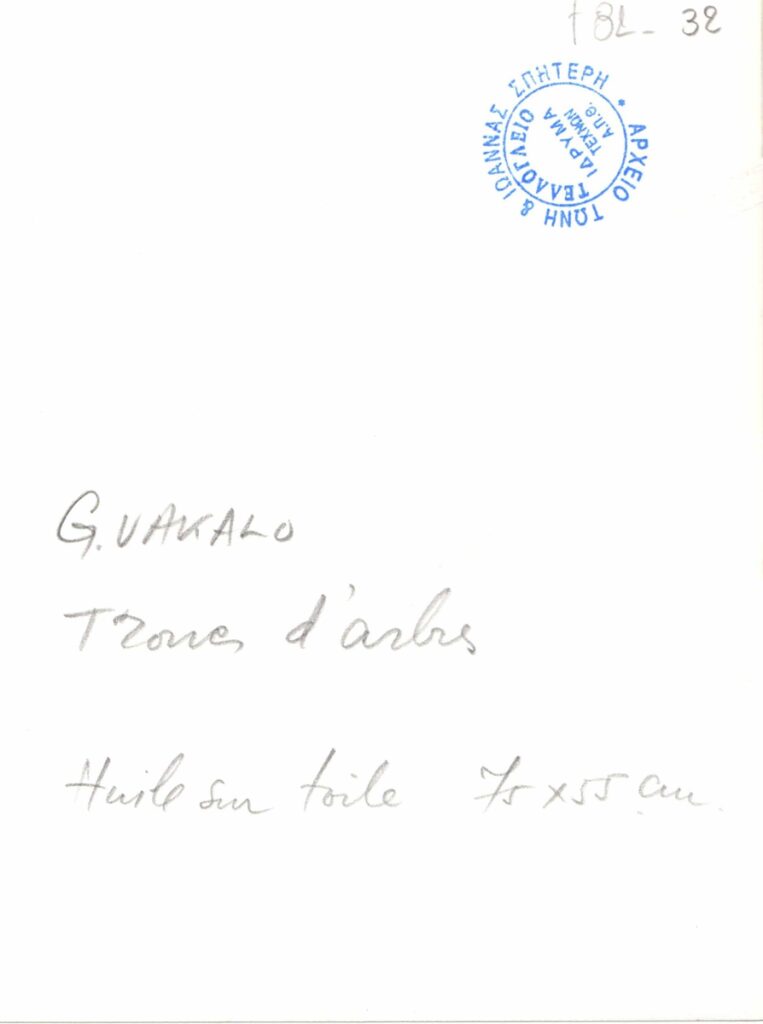 32
ΑΡΧΕΙΟ ΤΩΝΗ & ΙΩΑΝΝΑΣ ΣΠΗΤΕΡΗ *
ΤΕΛΛΟΓΛΕΙΟ
ΙΔΡΥΜΑ
ΤΕΧΝΩΝ
Α.Π.Θ.
G. VAKALO
Troncs d'arbres
Huile sur toile 75 x 55 cm.